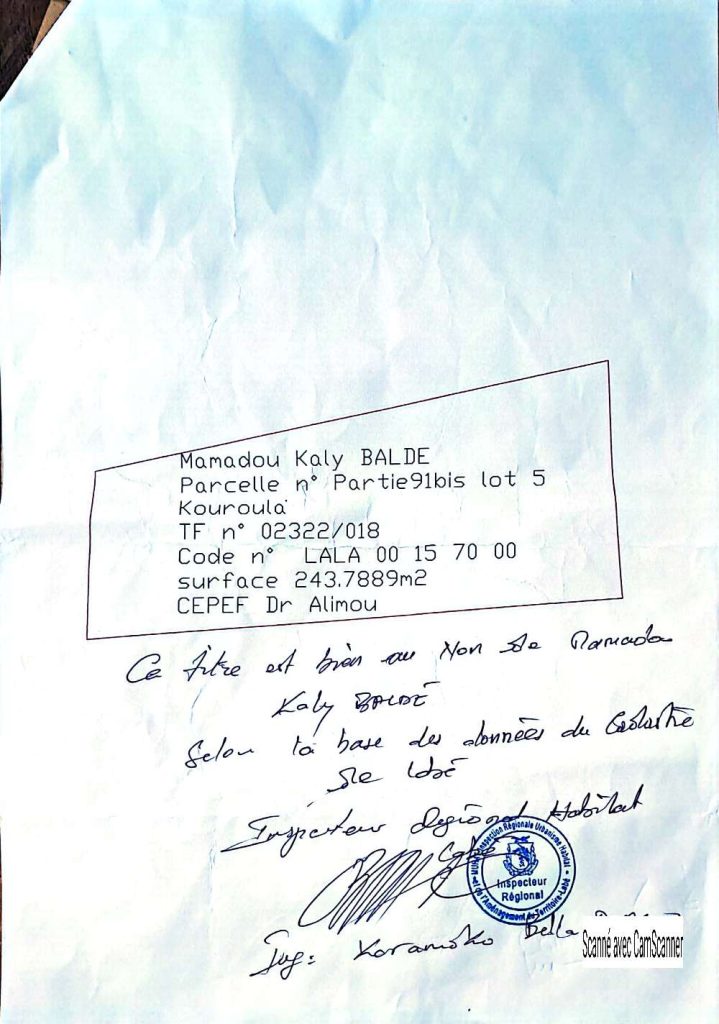 Mamadou Kaly BALDE
Parcelle n° Partie91bis lot 5
Kouroula
TF n° 02322/018
Code n° LALA 00 15 70 00
surface 243.7889m2
CEPEF Dr Alimou
Ce titre est bien au Nom de Mamadou
Kaly BALDÉ
Selon la base des données du Cadastre
de Labé
Inspecteur Régional Habitat
Labé
Inspection Régionale Urbanisme Habitat
et de l'Aménagement du Territoire-Labé
Inspecteur
Régional
Ing: Karamoko Bella
Scanné avec CamScanner